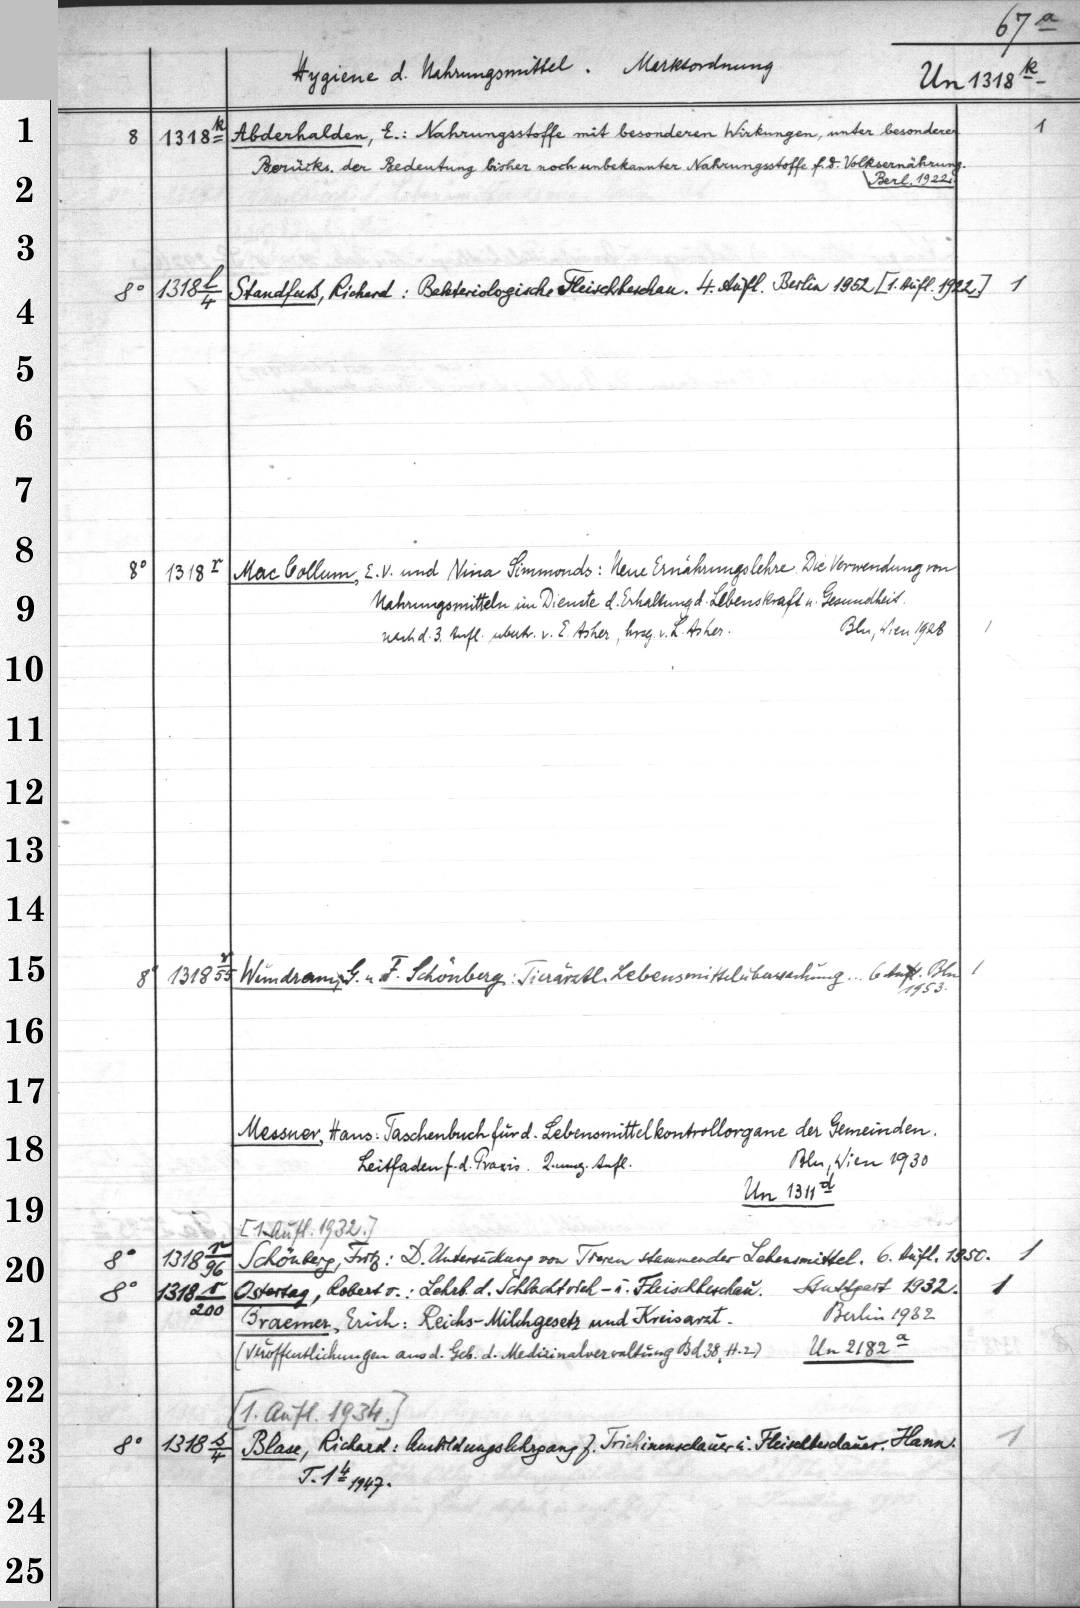 67 a
Hygiene d. Nahrungsmittel. Marktordnung Un 1318 k
1 8 1318 k Abderhalden, E.: Nahrungsstoffe mit besonderen Wirkungen, unter besonderer 1
Berücks. der Bedeutung bisher noch unbekannter Nahrungsstoffe f. d. Volksernährung.
2 Berl. 1922.
3
8° 1318 l/4 Standfuß, Richard: Bakteriologische Fleischbeschau. 4. Aufl. Berlin 1952 [1. Aufl. 1922.] 1
4
5
6
7
8
8° 1318 r Mac Collum, E.V. und Nina Simmonds: Neue Ernährungslehre. Die Verwendung von
9 Nahrungsmitteln im Dienste d. Erhaltung d. Lebenskraft u. Gesundheit.
nach d. 3. Aufl. übertr. v. E. Asher, hrsg. v. L. Asher. Bln, Wien 1928 1
10
11
12
13
14
15 8° 1318 r/55 Wundram, G. u. F. Schönberg: Tierärztl. Lebensmittelüberwachung... 6. Aufl. Bln 1
1953.
16
17
Messner, Hans: Taschenbuch für d. Lebensmittelkontrollorgane der Gemeinden.
18 Leitfaden f. d. Praxis. 2. umg. Aufl. Bln, Wien 1930
Un 1311 d
19
[1. Aufl. 1932.]
20 8° 1318 r/96 Schönberg, Fritz: D. Untersuchung von Tieren stammender Lebensmittel. 6. Aufl. 1950. 1
8° 1318 r/200 Ostertag, Robert v.: Lehrb. d. Schlachtvieh- u. Fleischbeschau. Stuttgart 1932. 1
21 Braemer, Erich: Reichs-Milchgesetz und Kreisarzt. Berlin 1932
(Veröffentlichungen aus d. Geb. d. Medizinalverwaltung Bd 38, H. 2) Un 2182 a
22
[1. Aufl. 1934.]
23 8° 1318 s/4 Blase, Richard: Ausbildungslehrgang f. Trichinenschauer u. Fleischbeschauer. Hann. 1
T. 1 4 1947.
24
25